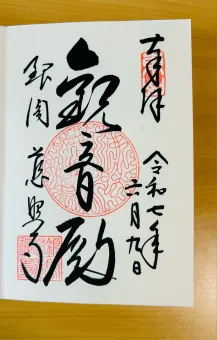 奉拝
令和七年
六月九日
観音殿
銀閣 慈照寺